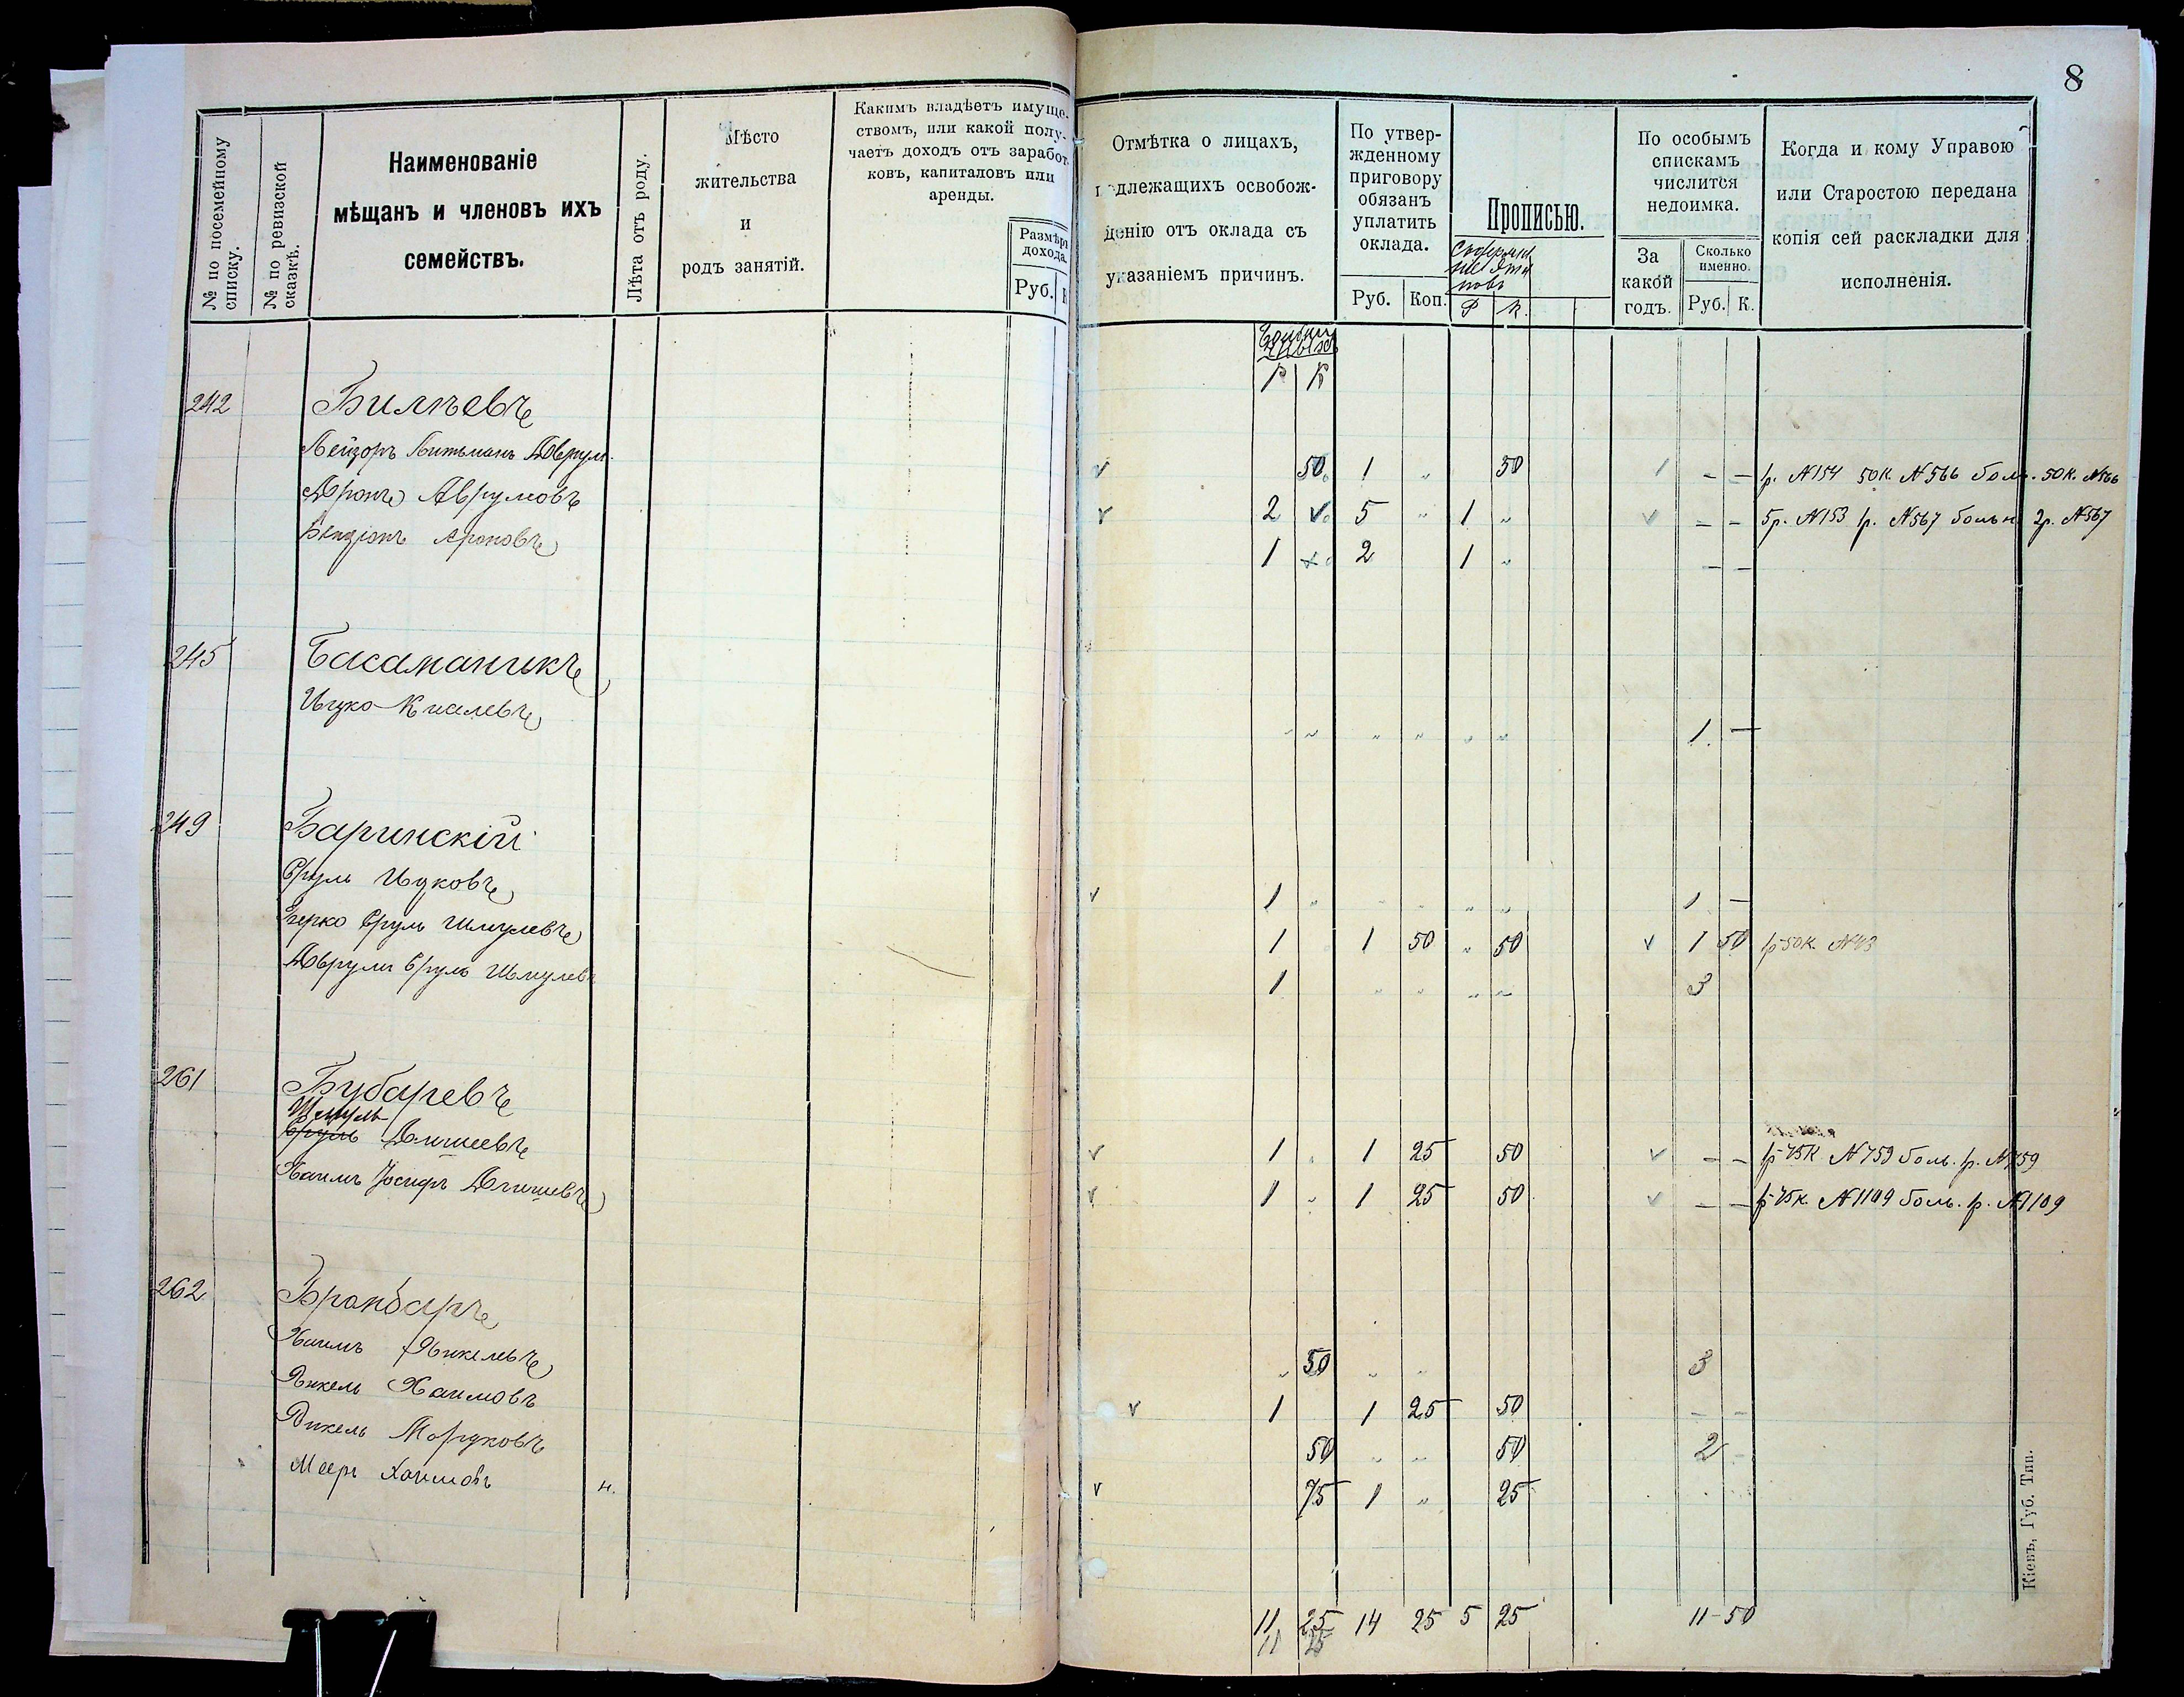 8
№ по посемейному списку.
№ по ревизской сказкѣ.
Наименованіе
мѣщанъ и членовъ ихъ
семействъ.
Лѣта отъ роду.
Мѣсто
жительства
и
родъ занятій.
Какимъ владѣетъ имуще-
ствомъ, или какой полу-
чаетъ доходъ отъ заработ-
ковъ, капиталовъ или
аренды.
Размѣръ
дохода.
Руб.
Отмѣтка о лицахъ,
длежащихъ освобож-
денію отъ оклада съ
указаніемъ причинъ.
По утвер-
жденному
приговору
обязанъ
уплатить
оклада.
Руб. Коп.
Прописью.
Р К.
По особымъ
спискамъ
числится
недоимка.
За
какой
годъ.
Сколько
именно.
Руб. К.
Когда и кому Управою
или Старостою передана
копія сей раскладки для
исполненія.
Р К
242 Билѣевъ
Лейзоръ Аврум. 50 1 „ 50 – – р. №154 50к. №566 боль. 50к. №566
Аронъ Аврумовъ 2 5 „ 1 „ – – 5р. №153 р. №567 больн 2р. №567
Бенціонъ Ароновъ 1 2 1 „ – –
245 Басаманикъ
Ицко Киселевъ „ „ „ „ „ „ 1. –
249 Баринскій
Сруль Ицковъ 1 „ „ „ „ „ 1 –
Герко Сруль Шмулевъ 1 1 50 „ 50 1 50 р 50к №43
Аврумъ Сруль Шмулевъ 1 „ „ „ „ 3
261 Бубаревъ
Шмуль
Сруль Аншеевъ 1 „ 1 25 50 – – р 75к №759 боль. р. №759
Хаимъ Іосифъ Аншеевъ 1 „ 1 25 50 – – р 75к №1109 боль. р. №1109
262 Бронбаръ
Хаимъ Янкелевъ „ 50 „ „ 3
Янкель Хаимовъ 1 1 25 50 – –
Янкель Морцковъ 50 „ „ 50 2 –
Мееръ Хаимовъ н. 75 1 „ 25
11 25 14 25 5 25 11–50
11 25
Кіевъ, Губ. Тип.